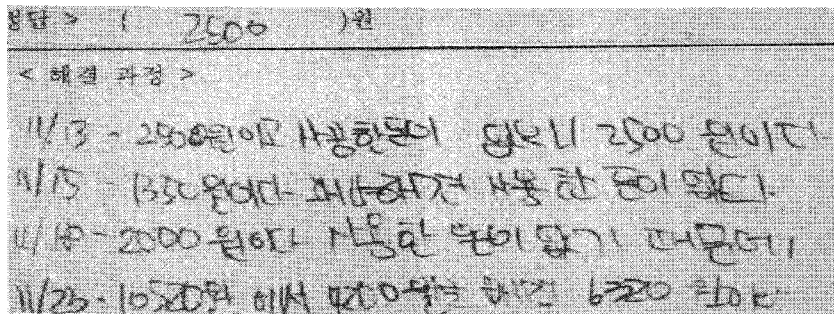 응답 > ( 2500 )원
< 해결 과정 >
11/13 - 2500원이고 사용한돈이 없으니 2500 원이다.
11/15 - 1350원이다 왜냐하면 사용 한 돈이 없다.
11/18 - 2000 원이다 사용한 돈이 없기 때문에,
11/23 - 10520원 에서 4200원을 빼면 6320 원이다